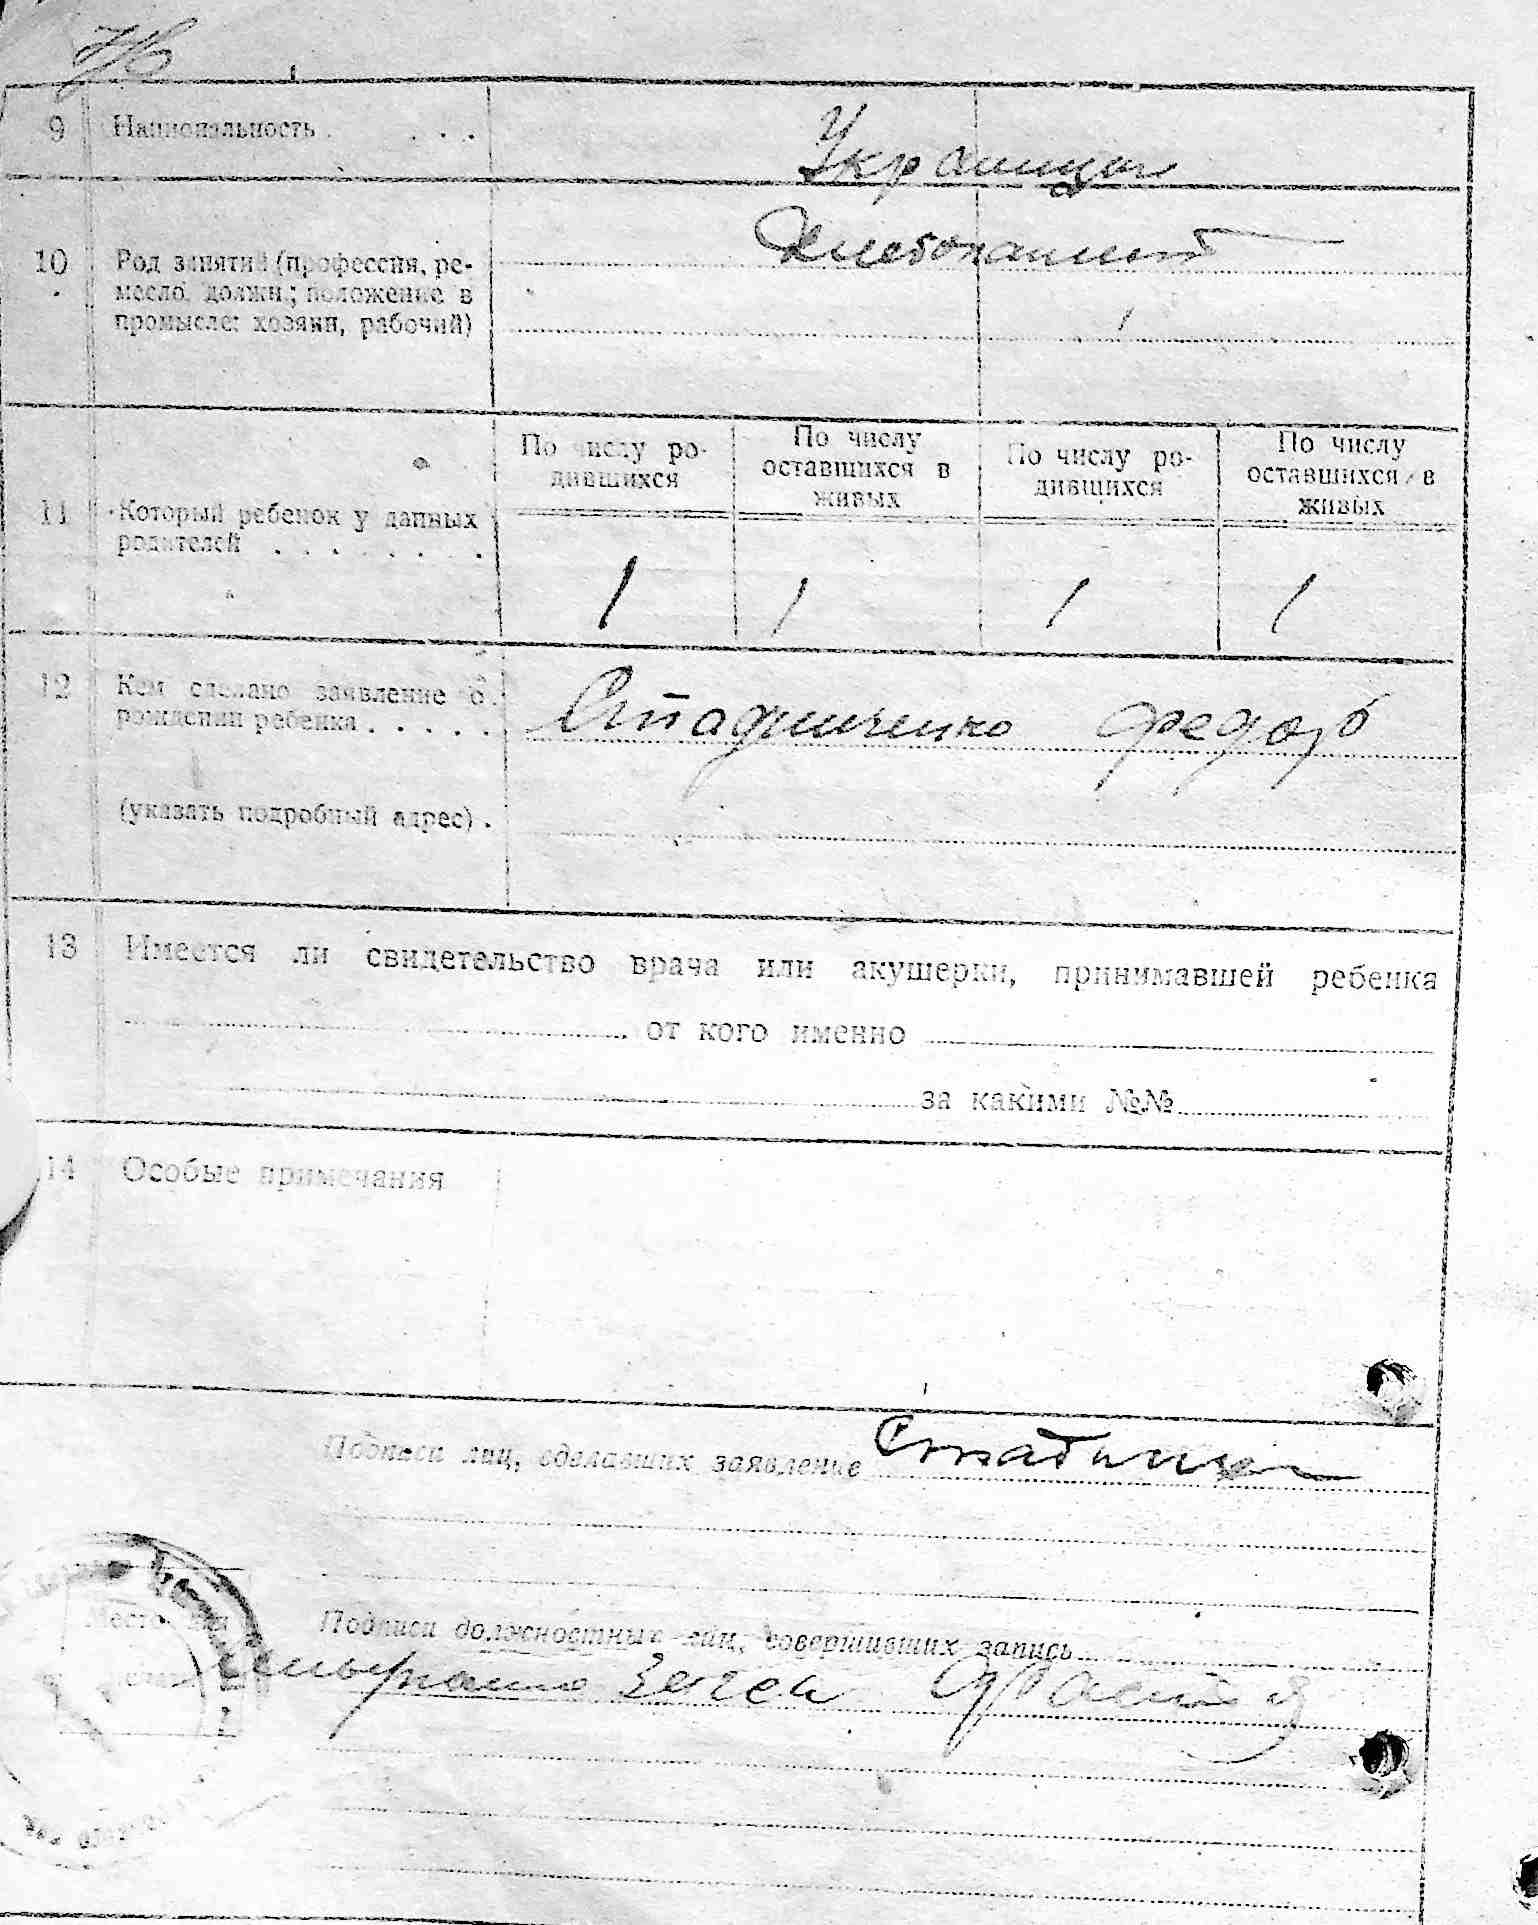 9 Национальность . . . .
Украинцы
10 Род занятий (профессия, ре-
месло, должн.; положение в
промысле: хозяин, рабочий)
Хлебопашест
11 Который ребенок у данных
родителей . . . . . . . .
По числу ро-
дившихся
По числу
оставшихся в
живых
По числу ро-
дившихся
По числу
оставшихся в
живых
1 1 1 1
12 Кем сделано заявление о
рождении ребенка . . . . .
Стадниченко Федор
(указать подробный адрес) .
13 Имеется ли свидетельство врача или акушерки, принимавшей ребенка
от кого именно
за какими №№
14 Особые примечания
Подписи лиц, сделавших заявление
Подписи должностных лиц, совершивших запись